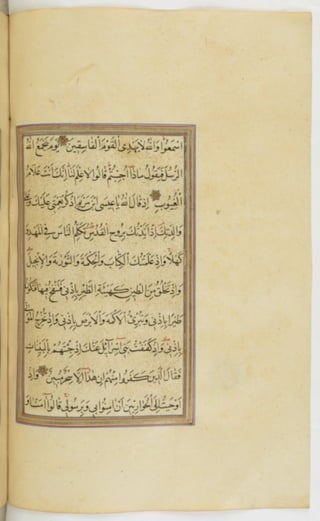 اسمعوا والله لا يهدى القوم الفاسقين يوم يجمع الله
الرسل فيقول ماذا اجبتم قالوا لا علم لنا انك انت علام
الغيوب اذ قال الله يا عيسى ابن مريم اذكر نعمتى عليك وعلى
والدتك اذ ايدتك بروح القدس تكلم الناس فى المهد و
كهلا واذ علمتك الكتاب والحكمة والتورية والانجيل
واذ تخلق من الطين كهيئة الطير باذنى فتنفخ فيها فتكون
طيرا باذنى وتبرئ الاكمه والابرص باذنى واذ تخرج الموتى
باذنى واذ كففت بنى اسرائيل عنك اذ جئتهم بالبينات
فقال الذين كفروا منهم ان هذا الا سحر مبين واذ
اوحيت الى الحواريين ان امنوا بى وبرسولى قالوا امنا و